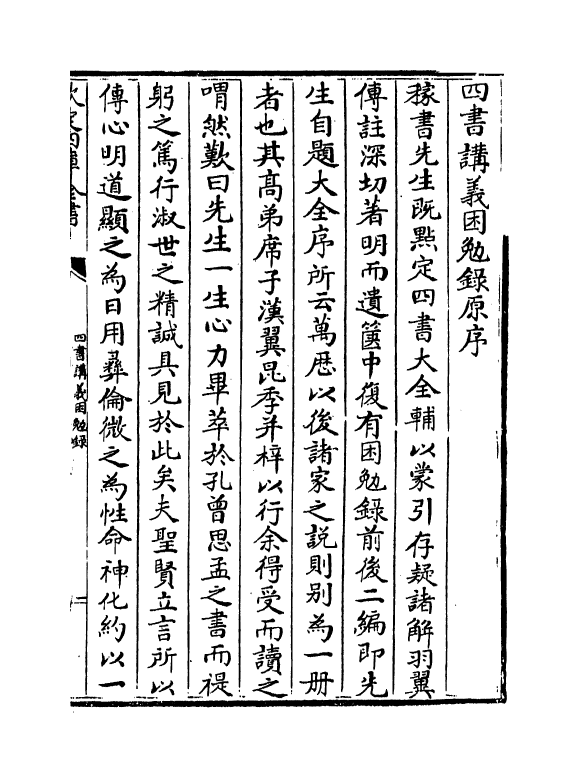 四書講義困勉錄原序
稼書先生既點定四書大全輔以蒙引存疑諸解羽翼
傳註深切著明而遺篋中復有困勉錄前後二編即先
生自題大全序所云萬歴以後諸家之説則别為一册
者也其髙弟席子漢翼昆季并梓以行余得受而讀之
喟然歎曰先生一生心力畢萃於孔曾思孟之書而禔
躬之篤行淑世之精誠具見於此矣夫聖賢立言所以
傳心明道顯之為日用彛倫微之為性命神化約以一
欽定四庫全書
四書講義困勉錄